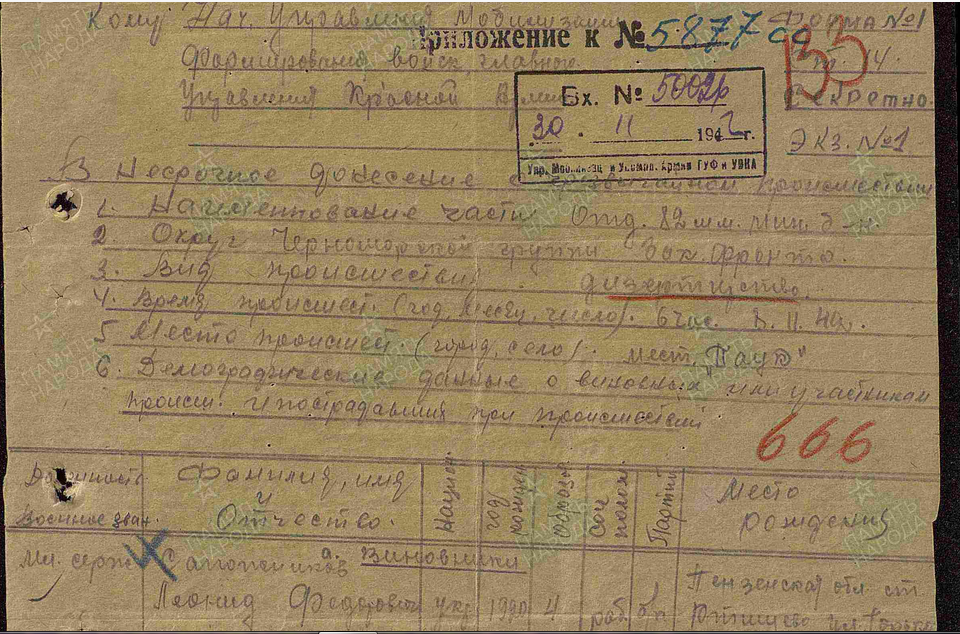 Кому Нач. Управления Мобилизации
Приложение к № 5877 сс
Форма №1
Формирования войск, главного
ст. 4.
133
Управления Красной Армии
Секретно.
Экз. №1
Вх. № 5002р
30 11 1942 г.
Упр. Мобилизац. и Укомпл. Армии ГУФ и УВКА
Несрочное донесение о чрезвычайном происшествии
1. Наименование части Отд. 82 мм. мин. б-н.
2. Округ Черноморской группы Зак. Фронта.
3. Вид происшествия дизертирство.
4. Время происшест. (год, месяц, число). 6 час. 8.11.42г.
5 Место происшест. (город, село). мест.
6. Демографические данные о виновных или участниках
происш. и пострадавших при происшествии
666
Должность
Военное зван.
Фамилия, имя
и
Отчество.
Национ.
год рожден
Соц. полож.
Партий
Место
рождения
а. Виновники
Мл. серж Сапожников
Леонид Федорович укр 1920 4 раб б/п
Пензенская обл. ст.